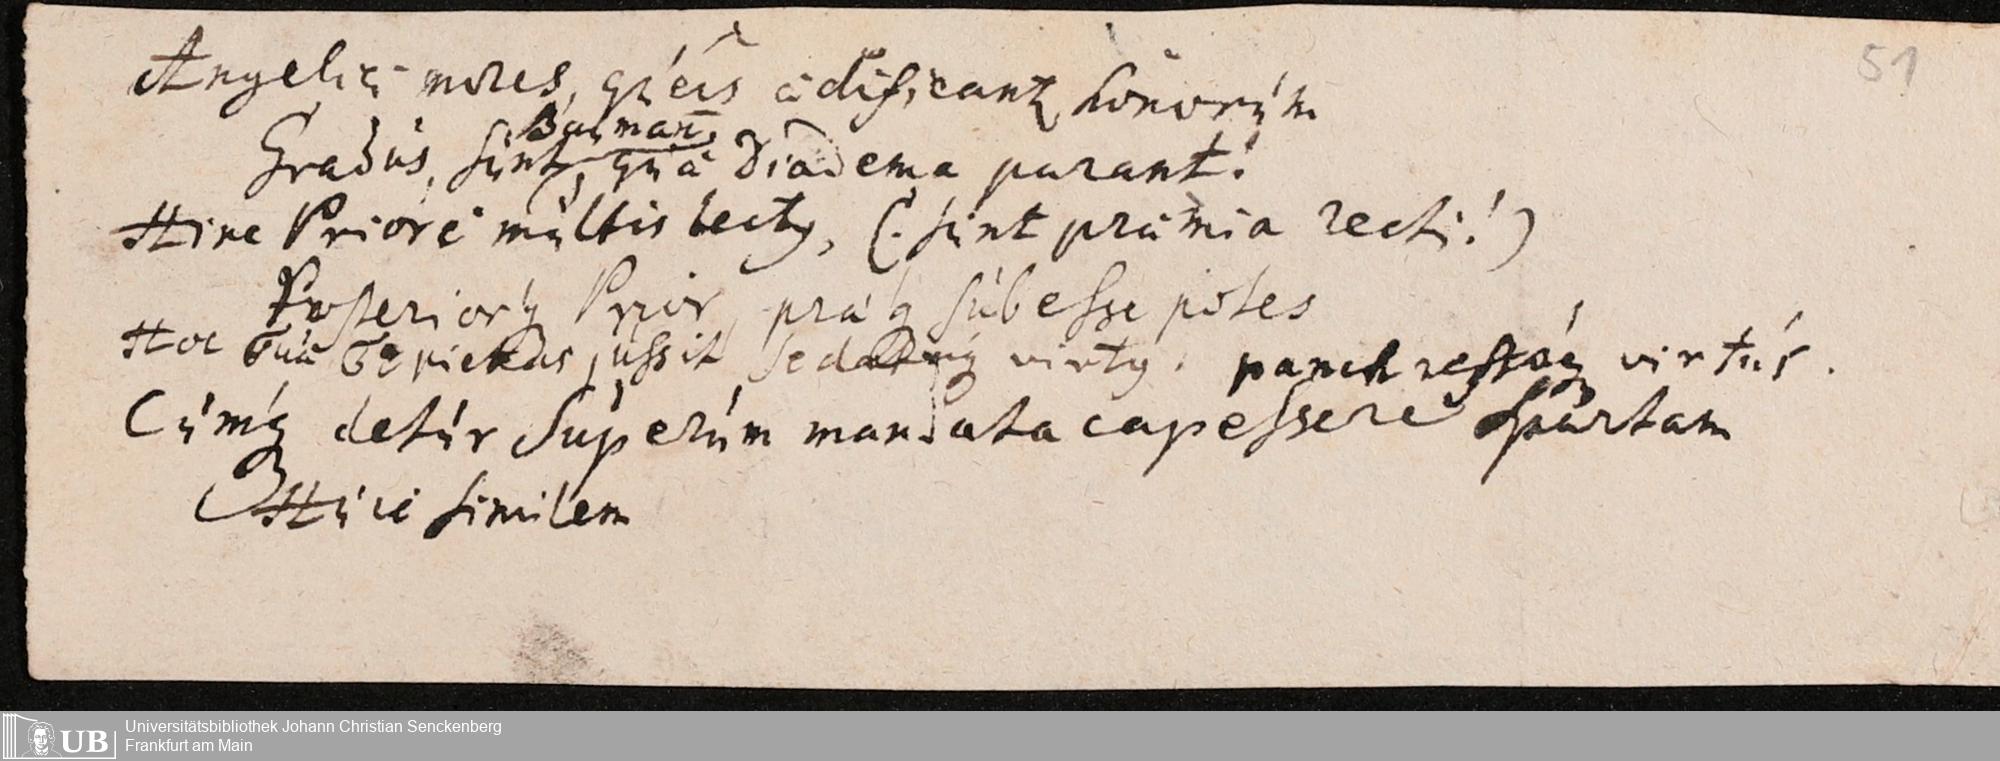 51
Angelici mores, queis ædificantz honorum
Bauman,
Gradus, sunt, quæ Diadema parant!
Hinc Priore multis lectq, (: sunt præmia recti!)
Posteriorq Prior, præq subesse potes
Hoc Tua Te pietas jussit sed virtq. panchrestaq virtus.
Cumq detur Superum mandata capessere Spartam
Huic similem
UB
Universitätsbibliothek Johann Christian Senckenberg
Frankfurt am Main